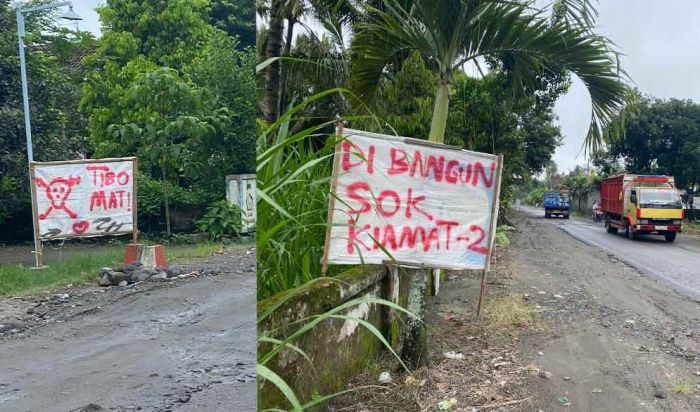 TIBO
MATI
DI BANGUN
SOK
KIAMAT-2